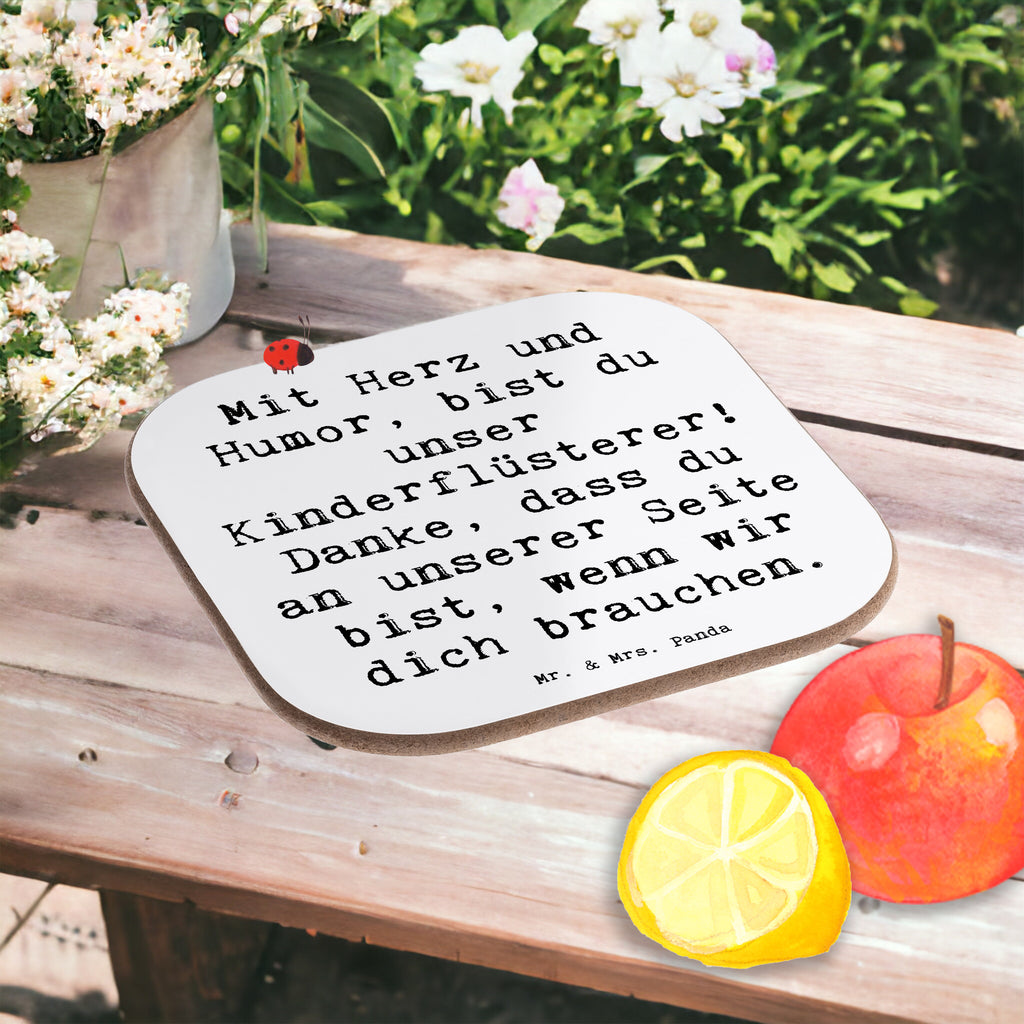 Mit Herz und
Humor, bist du
unser
Kinderflüsterer!
Danke, dass du
an unserer Seite
bist, wenn wir
dich brauchen.
Mr. & Mrs. Panda